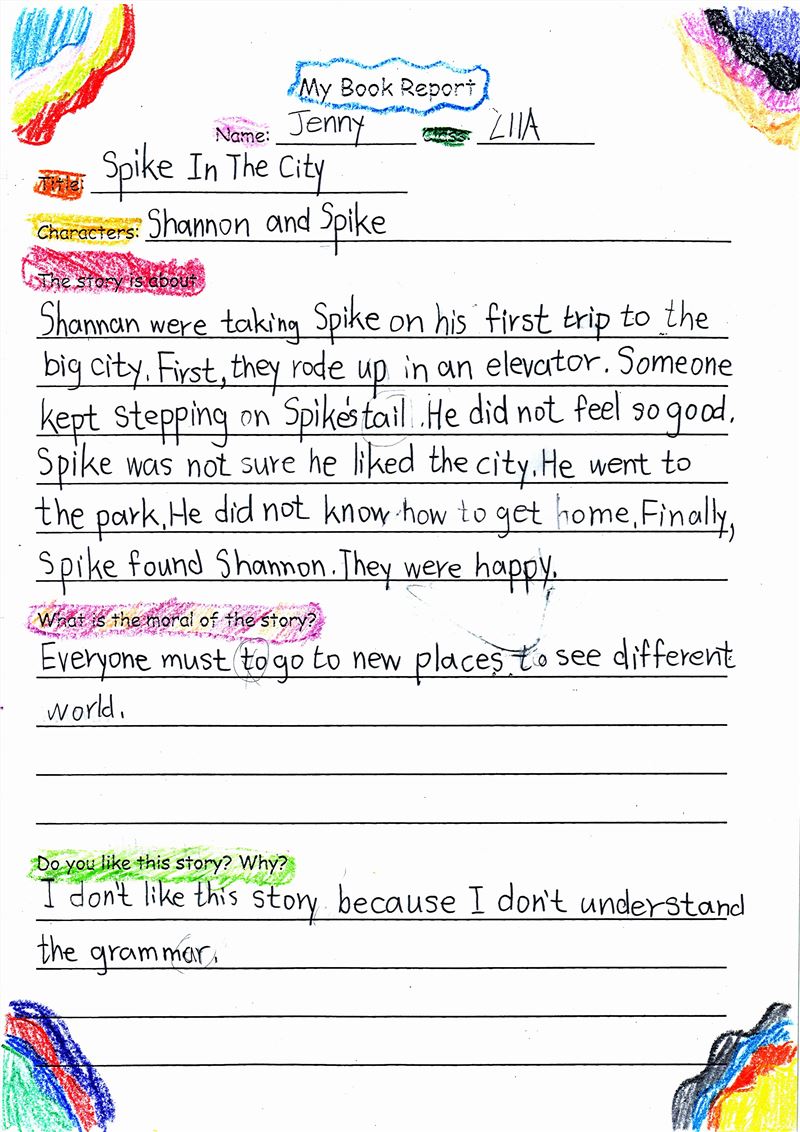 My Book Report
Name: Jenny Class: 211A
Title: Spike In The City
Characters: Shannon and Spike
The story is about
Shannan were taking Spike on his first trip to the
big city. First, they rode up in an elevator. Someone
kept stepping on Spike's tail. He did not feel so good.
Spike was not sure he liked the city. He went to
the park. He did not know how to get home. Finally,
Spike found Shannon. They were happy.
What is the moral of the story?
Everyone must to go to new places to see different
world.
Do you like this story? Why?
I don't like this story because I don't understand
the grammar.